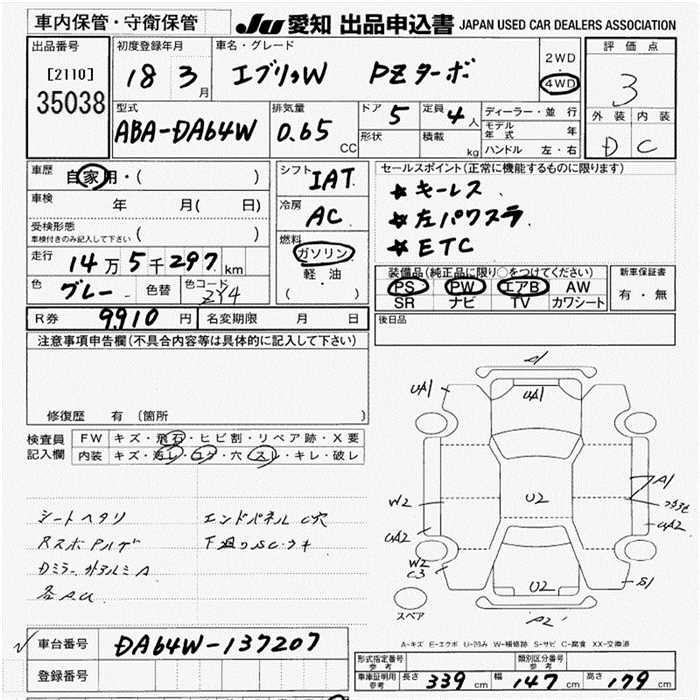 車内保管・守衛保管
JU 愛知 出品申込書 JAPAN USED CAR DEALERS ASSOCIATION
出品番号
[2110]
35038
初度登録年月
18 3月
車名・グレード
エブリィW PZターボ
2WD
・
4WD
評価点
3
外装 内装
D C
型式
ABA-DA64W
排気量
0.65 CC
ドア 5
形状
定員 4人
積載 kg
ディーラー・並行
モデル年式 年
ハンドル 左・右
車歴
自家用・( )
車検 年 月( 日)
受検形態
車検付きのみ記入して下さい ( )
走行 14万5千297km
色 グレー 色替 色コード ZY4
シフト IAT
冷房 AC
燃料
ガソリン
軽・油
( )
セールスポイント(正常に機能するものに限ります)
★ キーレス
★ 左パワスラ
★ ETC
装備品(純正品に限り○をつけてください)
PS PW エアB AW
SR ナビ TV カワシート
新車保証書
有・無
R券 9,910 円 名変期限 月 日
後日品
注意事項申告欄(不具合内容等は具体的に記入して下さい)
修復歴 有 (箇所 )
検査員記入欄
FW キズ・飛石・ヒビ割・リペア跡・X要
内装 キズ・汚レ・コゲ・穴・スレ・キレ・破レ
シートヘタリ エンドパネル C穴
Dミラー
A1
UA1
UA1
U2
A1
W2
UA2
UA2
W2
C3
U2
S1
スペア
A-キズ E-エクボ U-凹み W-補修跡 S-サビ C-腐食 XX-交換済
車台番号 DA64W-137207
登録番号
形式指定番号 参考
類別区分番号 参考
車庫証明用 参考 長さ 339 cm 幅 147 cm 高さ 179 cm